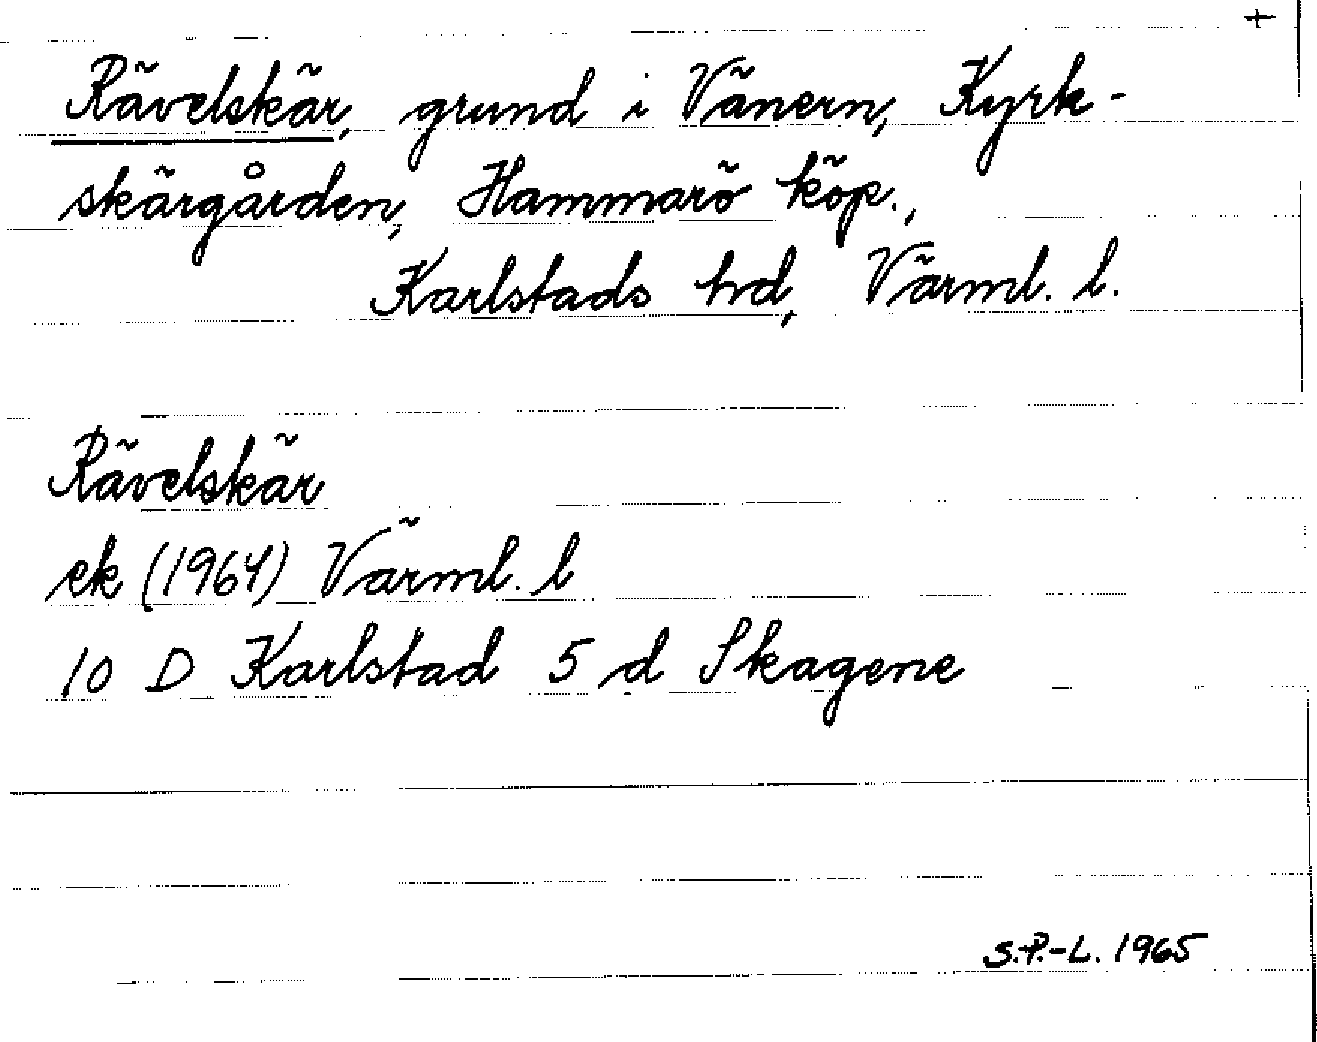 +
Rävelskär, grund i Vänern, Kyrk-
skärgården, Hammarö köp.,
Karlstads hd, Värml. l.
Rävelskär
ek (1964) Värml. l
10 D Karlstad 5 d Skagene
S.P.-L. 1965